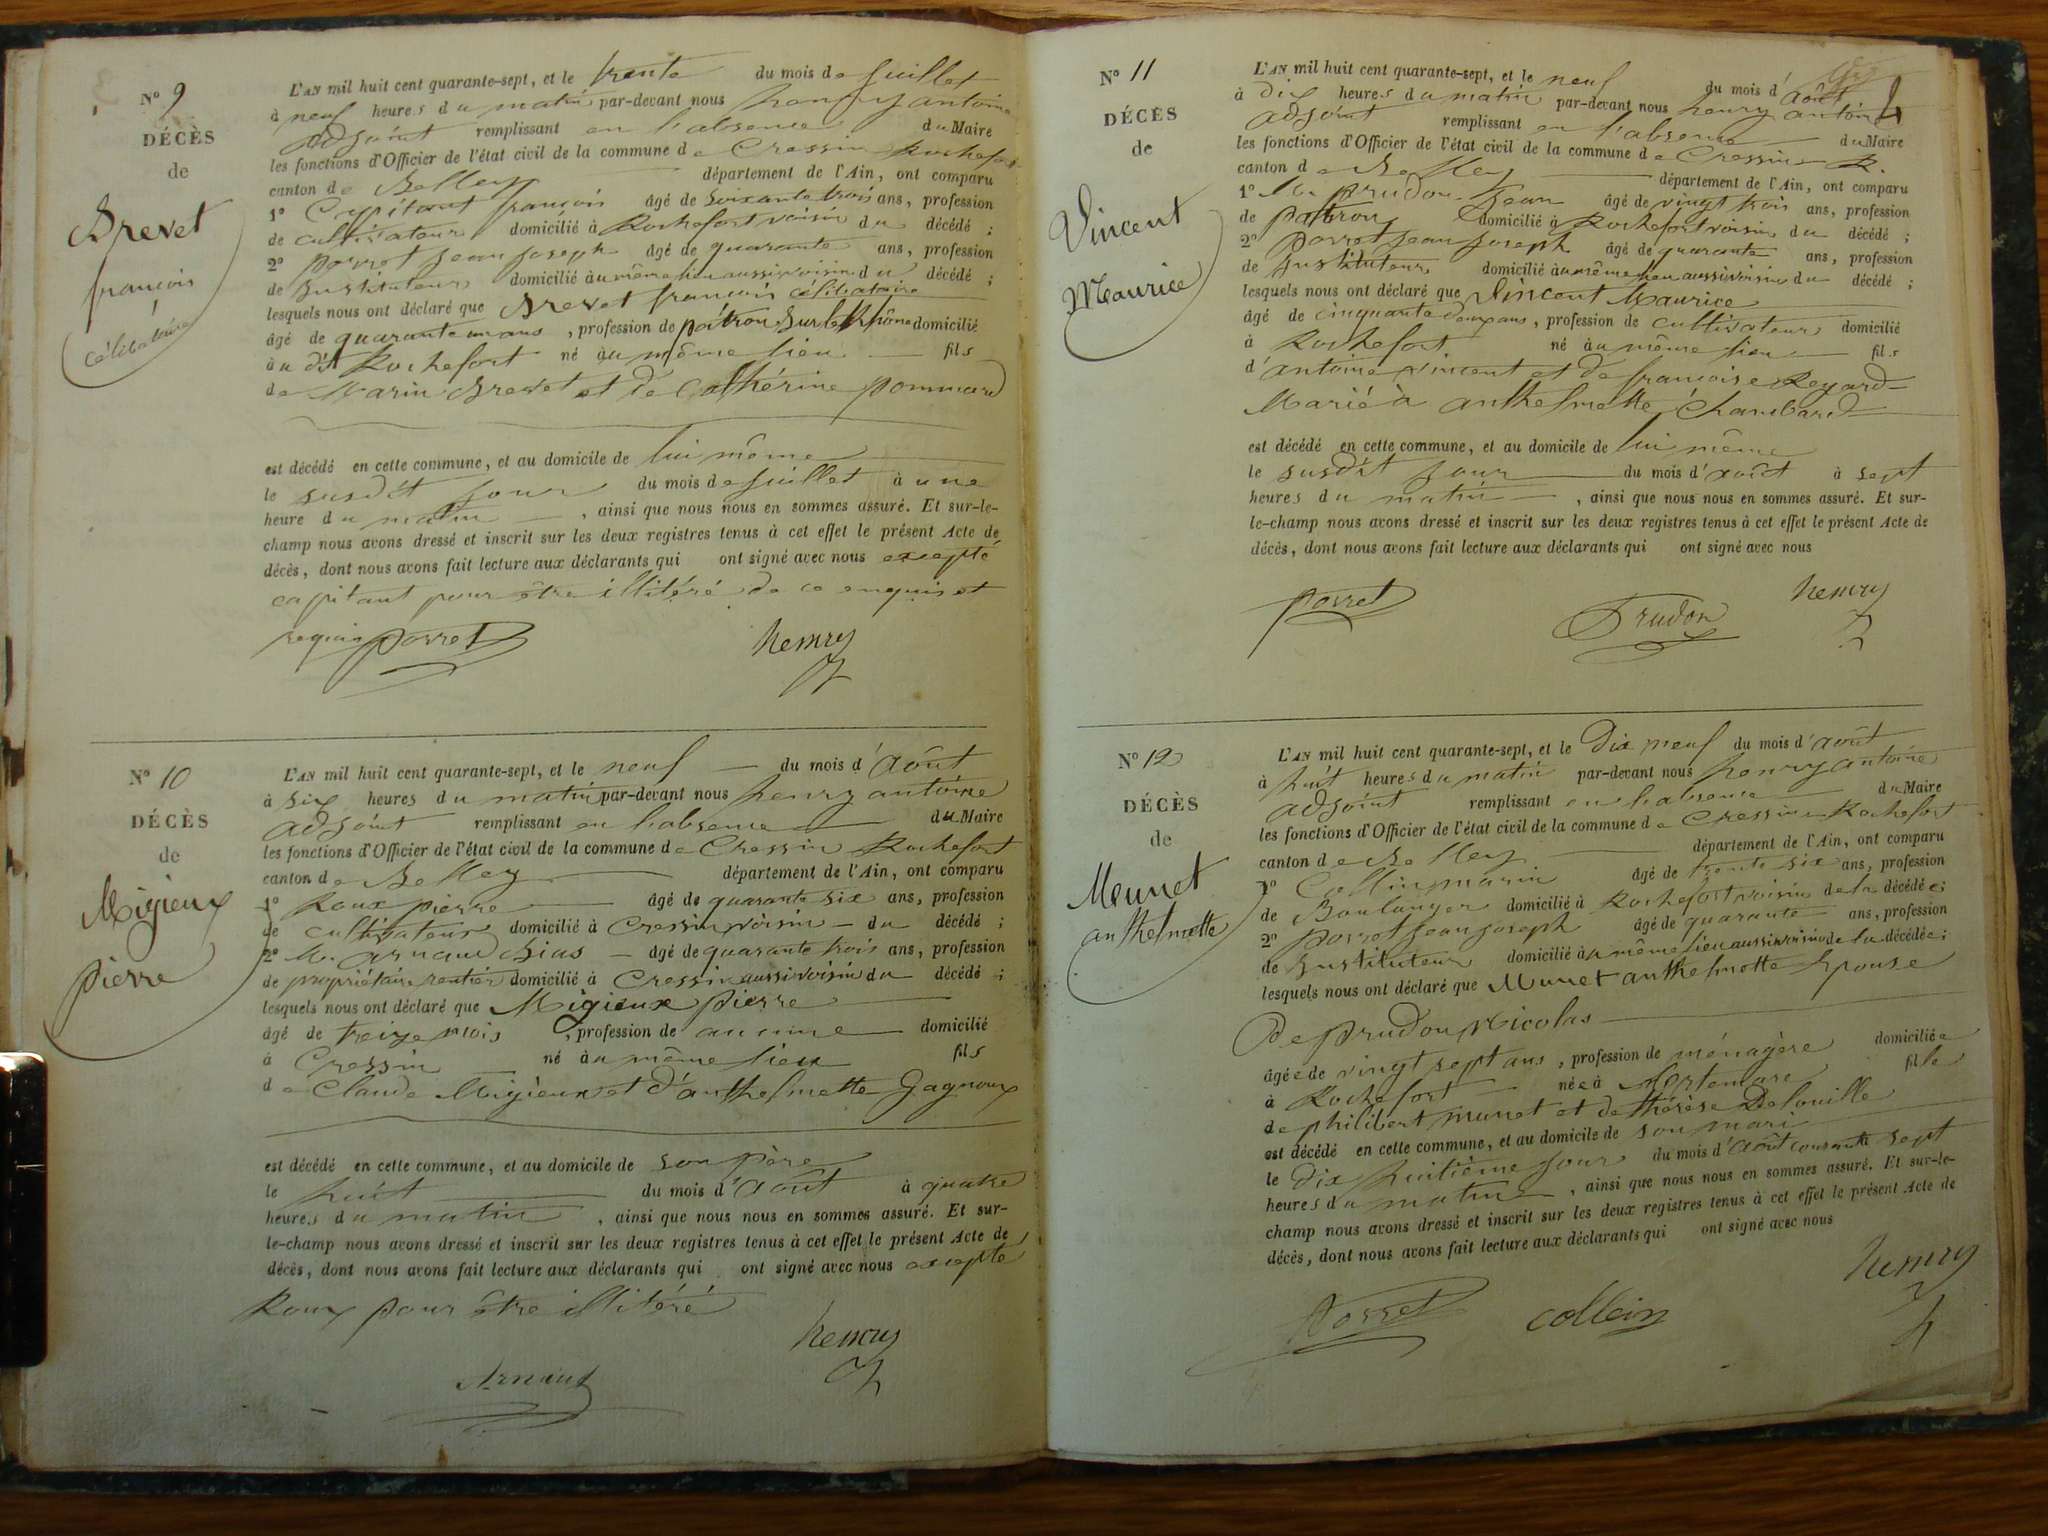 N° 9
DÉCÈS
de
Brevet
françois
célibataire
L'AN mil huit cent quarante-sept, et le trente du mois de Juillet
à neuf heures du matin par-devant nous henry antoine
adjoint remplissant en l'absence du Maire
les fonctions d'Officier de l'état civil de la commune de Cressin Rochefort
canton de Belley département de l'Ain, ont comparu
1° Capitant françois âgé de soixante trois ans, profession
de cultivateur domicilié à Rochefort voisin du décédé ;
2° porret Jean Joseph âgé de quarante ans, profession
de Instituteur domicilié au même lieu aussi voisin du décédé ;
lesquels nous ont déclaré que Brevet françois célibataire
âgé de quarante un ans, profession de patron sur le Rhône domicilié
au dit Rochefort né au même lieu fils
de Marin Brevet et de Cathérine pommard
est décédé en cette commune, et au domicile de lui même
le susdit jour du mois de juillet à une
heure du matin, ainsi que nous nous en sommes assuré. Et sur-le-
champ nous avons dressé et inscrit sur les deux registres tenus à cet effet le présent Acte de
décès, dont nous avons fait lecture aux déclarants qui ont signé avec nous excepté
capitant pour être illitéré de ce enquis et
requis porret henry
N° 10
DÉCÈS
de
Migieux
pierre
L'AN mil huit cent quarante-sept, et le neuf du mois d'Août
à six heures du matin par-devant nous henry antoine
adjoint remplissant en l'absence du Maire
les fonctions d'Officier de l'état civil de la commune de Cressin Rochefort
canton de Belley département de l'Ain, ont comparu
1° Roux pierre âgé de quarante six ans, profession
de cultivateur domicilié à Cressin voisin du décédé ;
2° M. arnaud Bias âgé de quarante trois ans, profession
de propriétaire rentier domicilié à Cressin aussi voisin du décédé ;
lesquels nous ont déclaré que Migieux pierre
âgé de treize mois, profession de aucune domicilié
à Cressin né au même lieu fils
de Claude Migieux et d'anthelmette Gagnoux
est décédé en cette commune, et au domicile de son père
le huit du mois d'Août à quatre
heures du matin, ainsi que nous nous en sommes assuré. Et sur-
le-champ nous avons dressé et inscrit sur les deux registres tenus à cet effet le présent Acte de
décès, dont nous avons fait lecture aux déclarants qui ont signé avec nous excepté
Roux pour être illitéré
henry
Arnaud
N° 11
DÉCÈS
de
Vincent
Maurice
L'AN mil huit cent quarante-sept, et le neuf du mois d'Août
à dix heures du matin par-devant nous henry antoine
adjoint remplissant en l'absence du Maire
les fonctions d'Officier de l'état civil de la commune de Cressin R.
canton de Belley département de l'Ain, ont comparu
1° M. prudon Jean âgé de vingt trois ans, profession
de patron domicilié à Rochefort voisin du décédé ;
2° porret Jean Joseph âgé de quarante ans, profession
de Instituteur domicilié au même lieu aussi voisin du décédé ;
lesquels nous ont déclaré que Vincent Maurice
âgé de cinquante deux ans, profession de cultivateur domicilié
à Rochefort né au même lieu fils
d'antoine vincent et de françoise Reyard
Marié à anthelmette Chambard
est décédé en cette commune, et au domicile de lui même
le susdit jour du mois d'août à sept
heures du matin, ainsi que nous nous en sommes assuré. Et sur-
le-champ nous avons dressé et inscrit sur les deux registres tenus à cet effet le présent Acte de
décès, dont nous avons fait lecture aux déclarants qui ont signé avec nous
porret Prudon henry
N° 12
DÉCÈS
de
Munet
anthelmette
L'AN mil huit cent quarante-sept, et le Dix neuf du mois d'août
à huit heures du matin par-devant nous henry antoine
adjoint remplissant en l'absence du Maire
les fonctions d'Officier de l'état civil de la commune de Cressin Rochefort
canton de Belley département de l'Ain, ont comparu
1° Collin marin âgé de trente six ans, profession
de Boulanger domicilié à Rochefort voisin de la décédée ;
2° porret Jean Joseph âgé de quarante ans, profession
de Instituteur domicilié au même lieu aussi voisin de la décédée ;
lesquels nous ont déclaré que Munet anthelmette Epouse
De prudon Nicolas
âgée de vingt sept ans, profession de ménagère domiciliée
à Rochefort née à Mortemare fille
de philibert munet et de thérèse Delouille
est décédé en cette commune, et au domicile de son mari
le dix huitième jour du mois d'août courant à sept
heures du matin, ainsi que nous nous en sommes assuré. Et sur-le-
champ nous avons dressé et inscrit sur les deux registres tenus à cet effet le présent Acte de
décès, dont nous avons fait lecture aux déclarants qui ont signé avec nous
porret collein henry